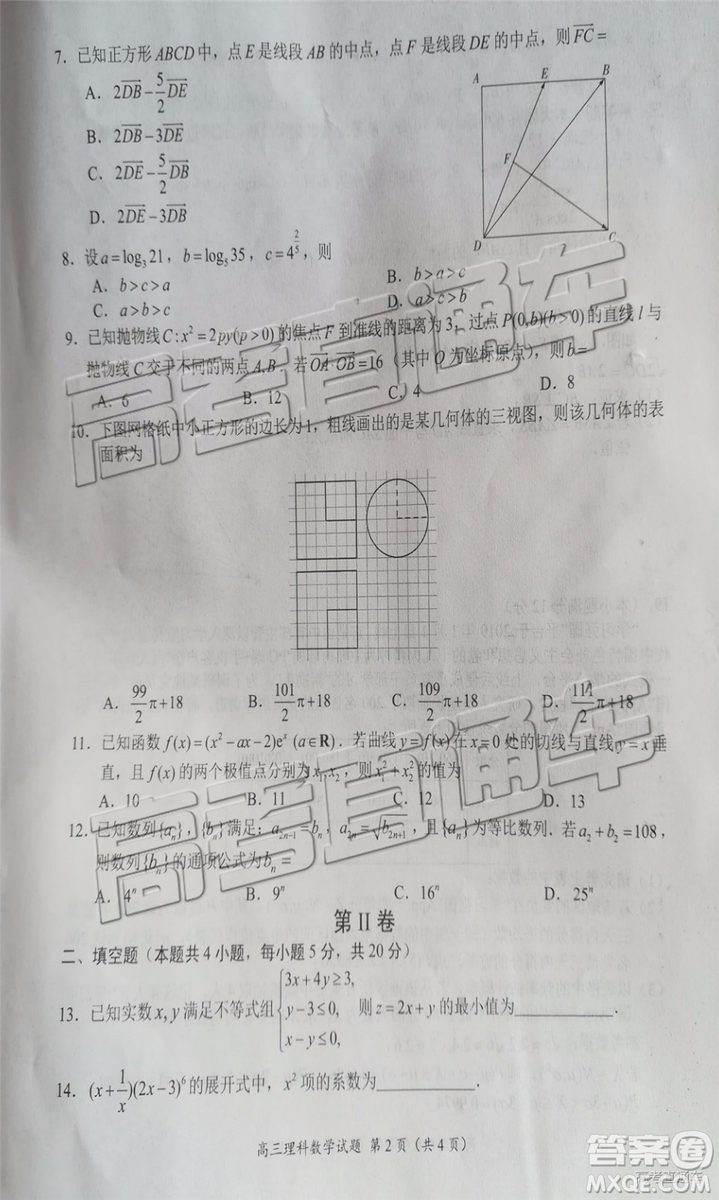 7. 已知正方形ABCD中，点E是线段AB的中点，点F是线段DE的中点，则$\overline{FC}$=
A. $2\overline{DB}-\frac{5}{2}\overline{DE}$
B. $2\overline{DB}-3\overline{DE}$
C. $2\overline{DE}-\frac{5}{2}\overline{DB}$
D. $2\overline{DE}-3\overline{DB}$
A E B
F
D C
8. 设$a=\log_3 21$，$b=\log_5 35$，$c=4^{\frac{2}{5}}$，则
A. b>c>a B. b>a>c
C. a>b>c D. a>c>b
9. 已知抛物线C:$x^2=2py(p>0)$的焦点F到准线的距离为3，过点P(0,b)(b>0)的直线l与
抛物线C交于不同的两点A,B. 若$\overline{OA}\cdot\overline{OB}=16$（其中O为坐标原点），则b=
A. 6 B. 12 C. 4 D. 8
10. 下图网格纸中小正方形的边长为1，粗线画出的是某几何体的三视图，则该几何体的表
面积为
A. $\frac{99}{2}\pi+18$ B. $\frac{101}{2}\pi+18$ C. $\frac{109}{2}\pi+18$ D. $\frac{111}{2}\pi+18$
11. 已知函数$f(x)=(x^2-ax-2)e^x$ (a∈R). 若曲线y=f(x)在x=0处的切线与直线y=x垂
直，且f(x)的两个极值点分别为$x_1,x_2$，则$x_1^2+x_2^2$的值为
A. 10 B. 11 C. 12 D. 13
12. 已知数列$\{a_n\}$，$\{b_n\}$满足：$a_{2n-1}=b_n$，$a_{2n}=\sqrt{b_{2n+1}}$，且$\{a_n\}$为等比数列. 若$a_2+b_2=108$，
则数列$\{b_n\}$的通项公式为$b_n=$
A. $4^n$ B. $9^n$ C. $16^n$ D. $25^n$
第Ⅱ卷
二、填空题（本题共4小题，每小题5分，共20分）
13. 已知实数x,y满足不等式组$\begin{cases}3x+4y\geq3,\\y-3\leq0,\\x-y\leq0,\end{cases}$ 则z=2x+y的最小值为________.
14. $(x+\frac{1}{x})(2x-3)^6$的展开式中，$x^2$项的系数为________.
高三理科数学试题 第2页（共4页）
高考直通车
高考直通车
答案圈
MXQE.COM